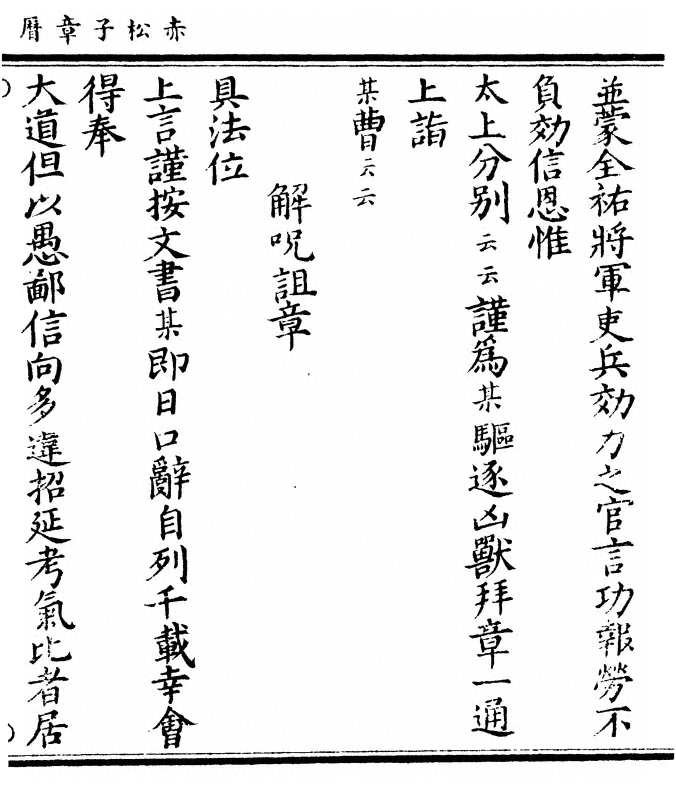 赤松子章曆
並蒙全祐將軍吏兵効力之官言功報勞不
負効信恩惟
太上分别云云謹爲某驅逐凶獸拜章一通
上詣
某曹云云
解呪詛章
具法位
上言謹按文書某即日口辭自列千載幸會
得奉
大道但以愚鄙信向多違招延考氣比者居